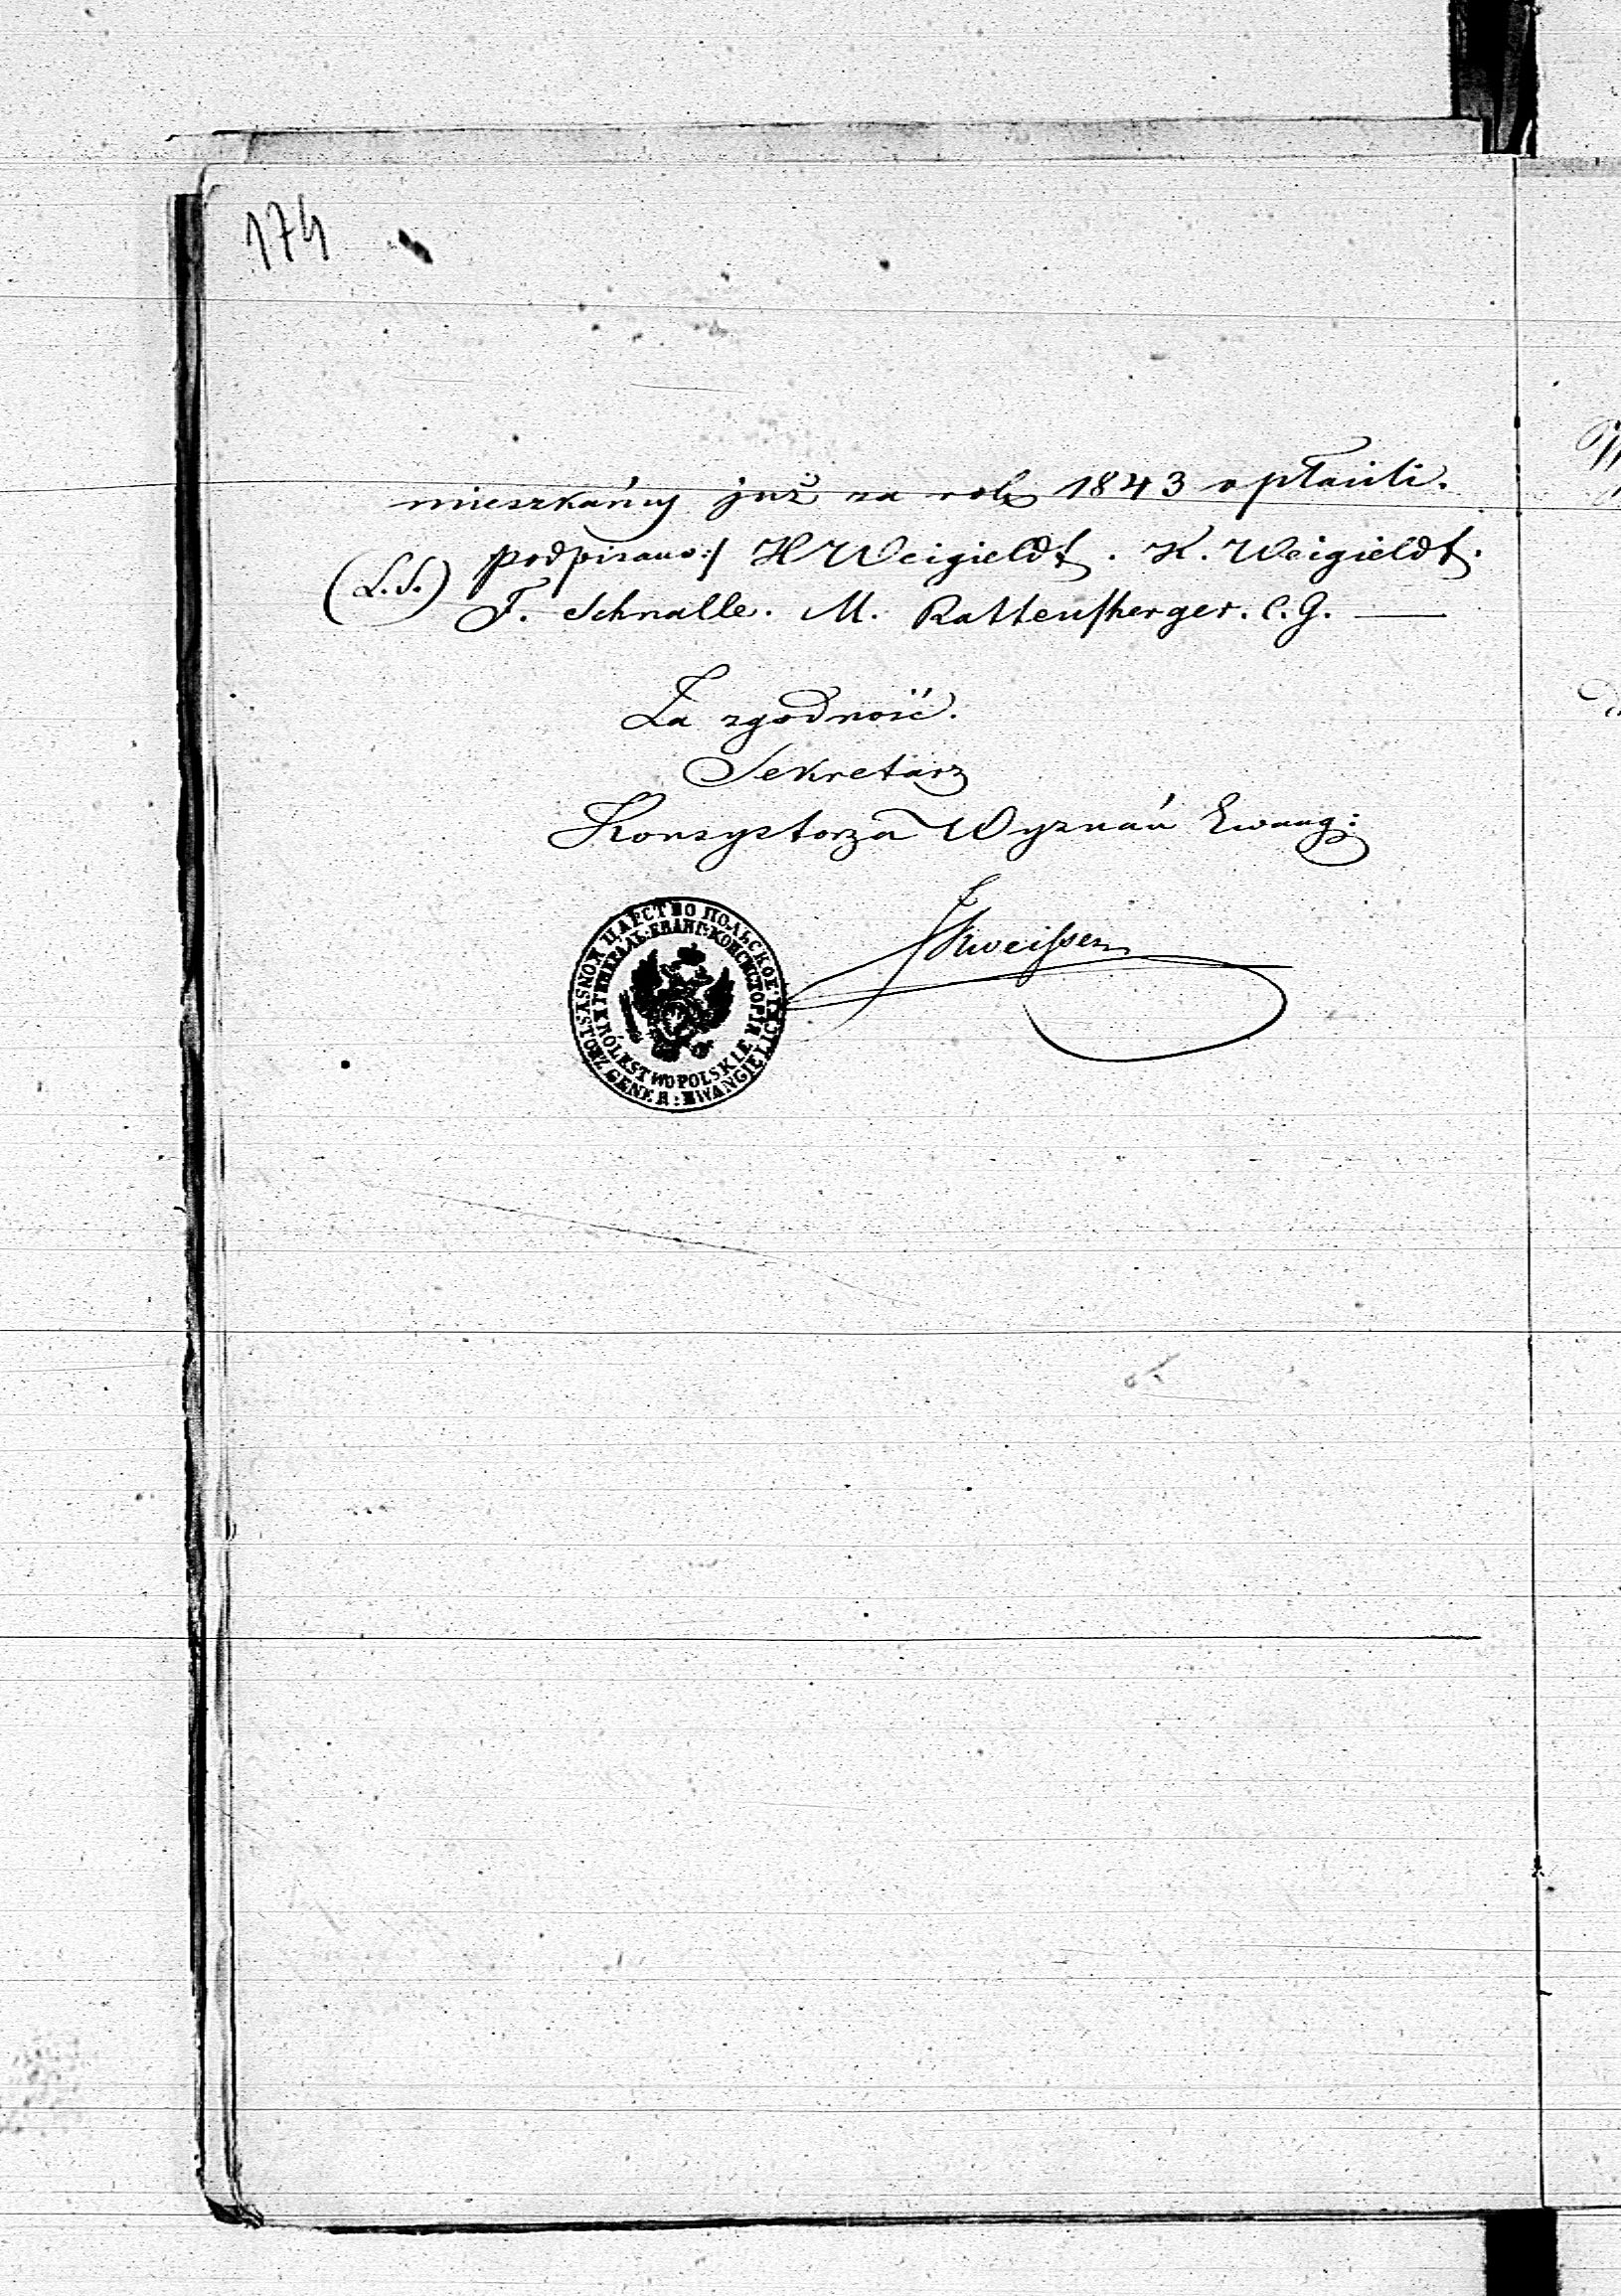 174
mieszkańcy już za rok 1843 opłacili.
(L.S.) podpisano:/ H Weigieldt. K. Weigieldt.
F. Schnalle. M. Rattensperger. C. G. —
Za zgodność.
Sekretarz
Konsystorza Wyznań Ewang:
ЦАРСТВО ПОЛЬСКОЕ
ГЕНЕРАЛЬ: ЕВАНГ: КОНСИСТОРІЯ
KRÓLESTWO POLSKIE
KONSYSTORZ GENER: EWANGIELICKI